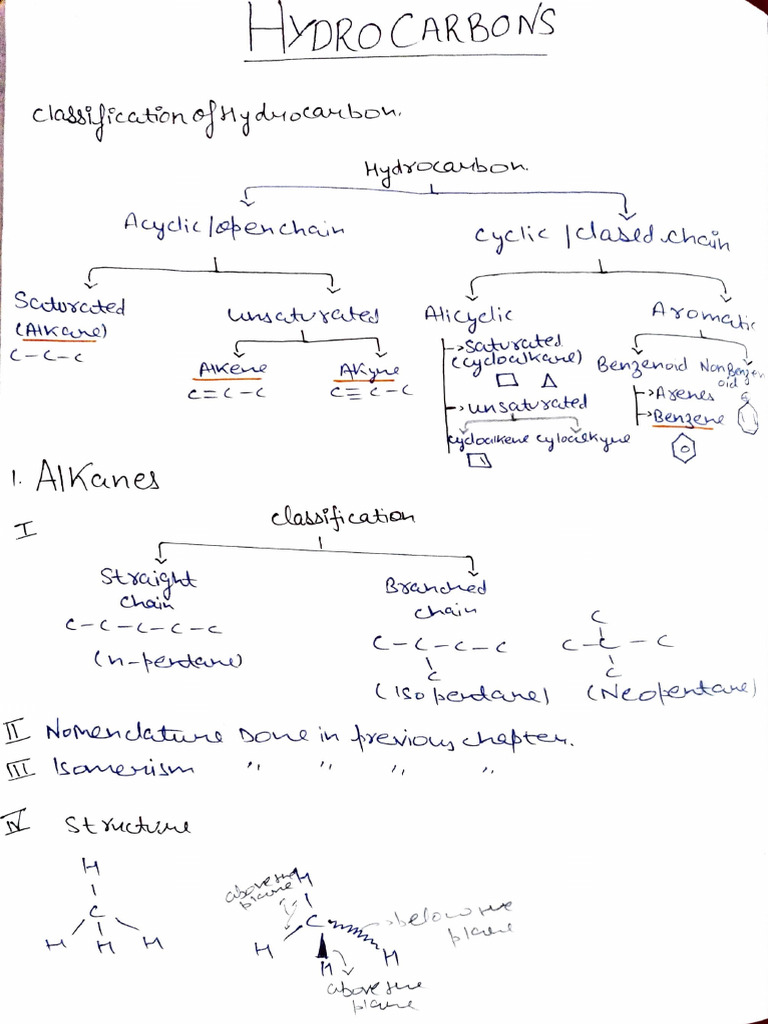 HYDROCARBONS
Classification of Hydrocarbon.
Hydrocarbon.
Acyclic/open chain
cyclic/clased chain
Saturated
(Alkane)
C-C-C
Unsaturated
Alkene
C=C-C
Alkyne
C≡C-C
Alicyclic
→saturated
(cycloalkane)
→unsaturated
cycloalkene cyloalkyne
Aromatic
Benzenoid
→Arenes
→Benzene
NonBenzen
oid
1. Alkanes
I
classification
Straight
chain
C-C-C-C-C
(n-pentane)
Branched
chain
C-C-C-C
C
(Isopentane)
C
C-C-C
C
(Neopentane)
II Nomenclature Done in previous chapter.
III Isomerism " " " "
IV Structure
H
C
H H H
above the
plane
H
C
below the
plane
H
H
H
above the
plane